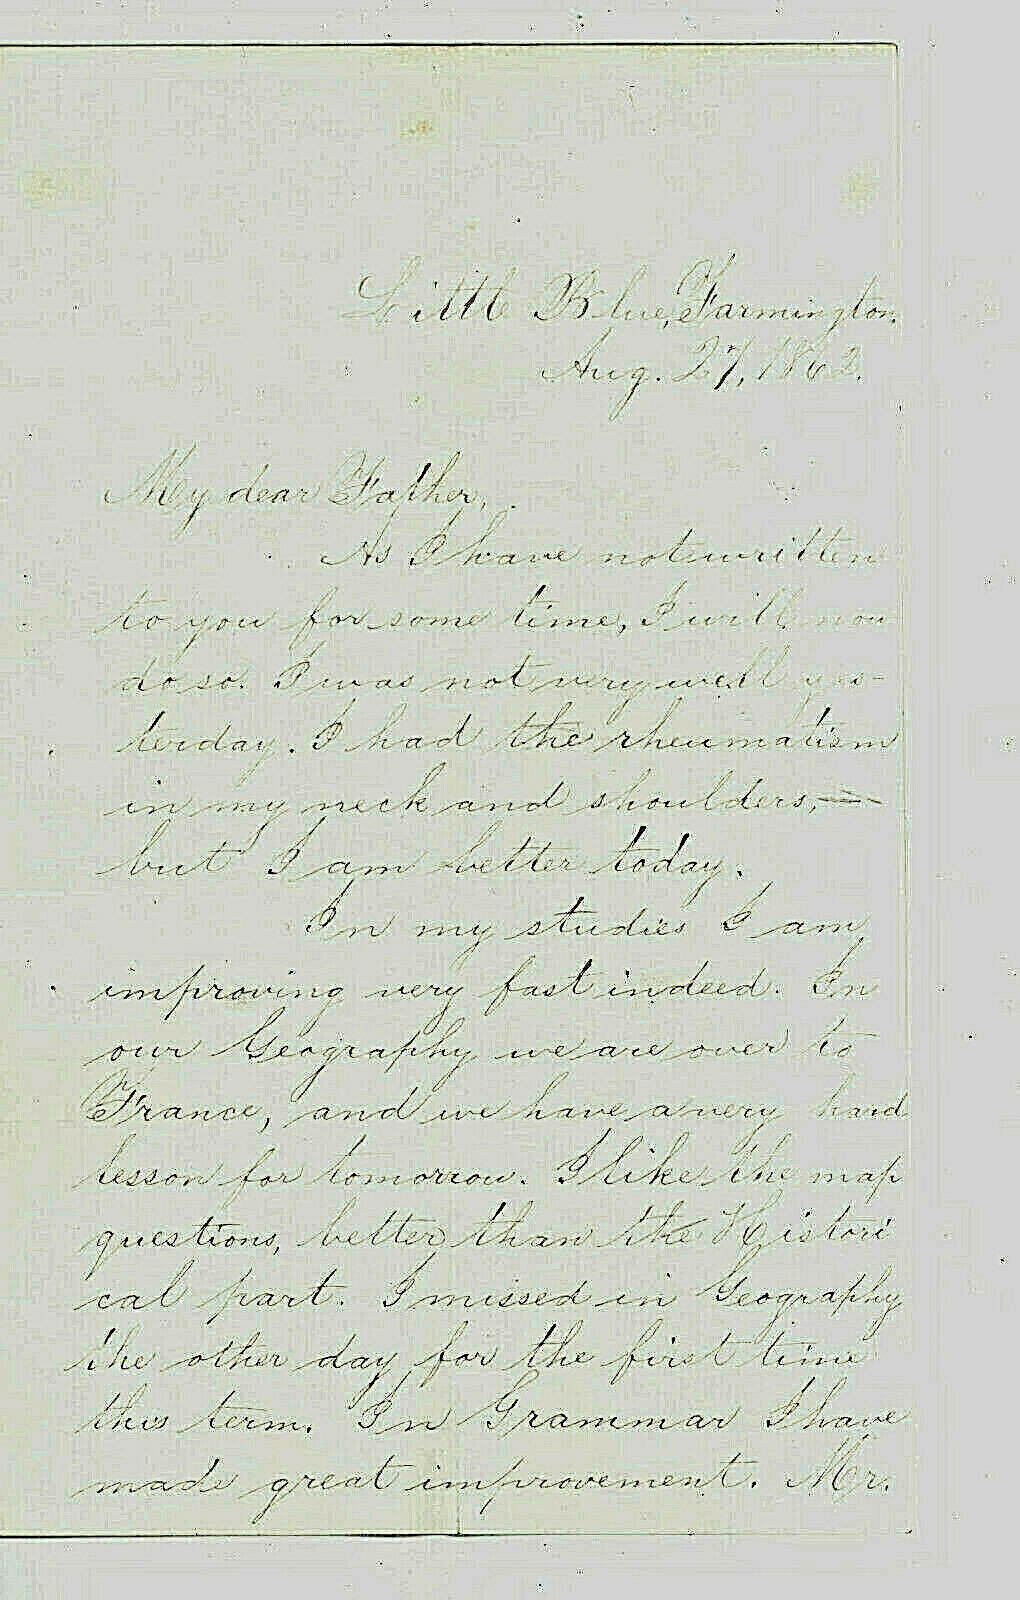 Little Blue, Farmington.
Aug. 27, 1862.
My dear Father,
As I have not written
to you for some time, I will now
do so. I was not very well yes-
terday. I had the rheumatism
in my neck and shoulders, —
but I am better today.
In my studies I am
improving very fast indeed. In
our Geography we are over to
France, and we have a very hard
lesson for tomorrow. I like the map
questions, better than the Histori
cal part. I missed in Geography
the other day for the first time
this term. In Grammar I have
made great improvement. Mr.